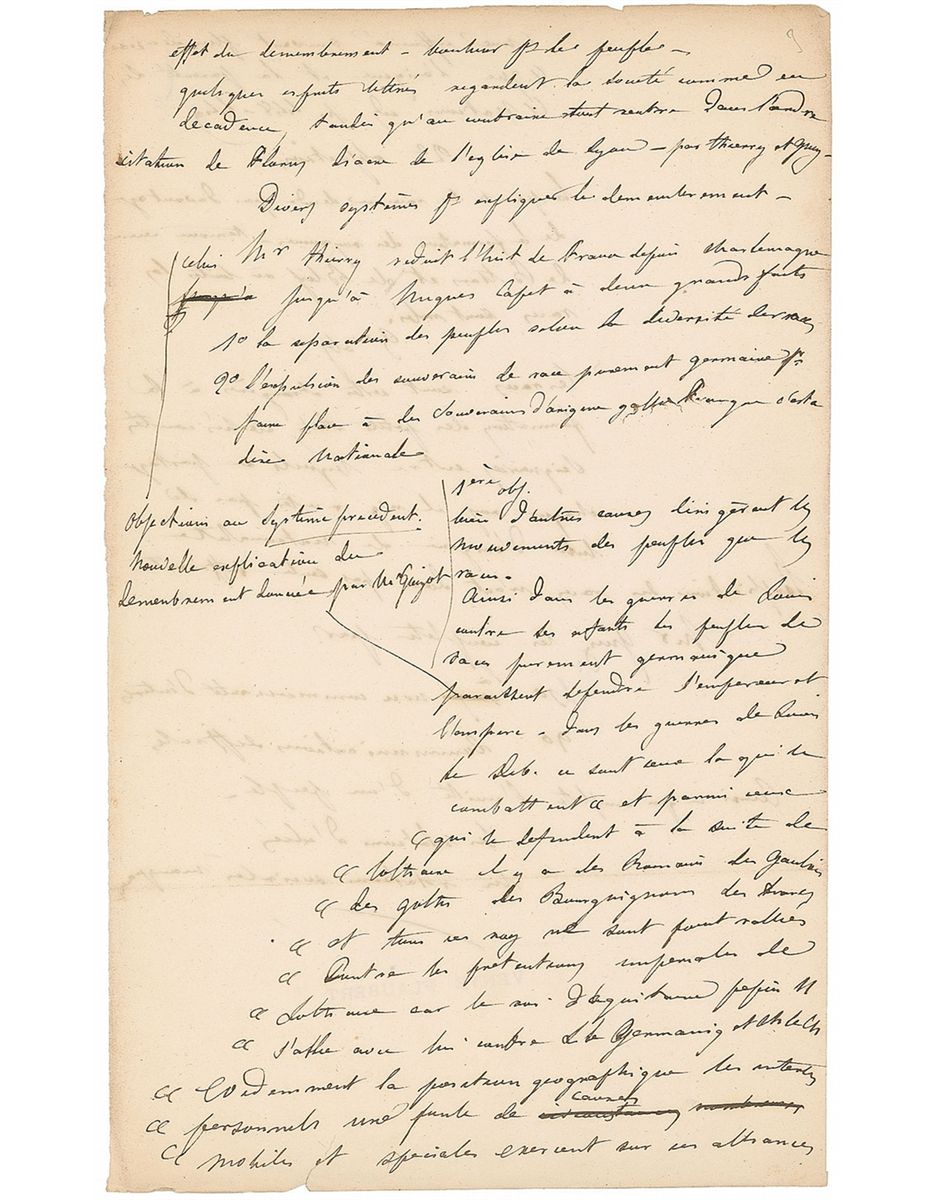 effet du demembrement – bonheur pr les peuples –
quelques esprits lettrés regardent la société comme en
decadence, tandis qu'au contraire tout rentre dans l'ordre
citation de Florus diacre de l'eglise de Lyon – par thierry et Guiz–
Divers systèmes pr expliquer le demembrement –
celui Mr thierry reduit l'hist de France depuis charlemagne
jusqu'à jusqu'à Hugues Capet à deux grands faits
1º la separation des peuples selon la diversité des races
2º l'expulsion des souverains de race purement germaine pr
faire place à des souverains d'origine gallo Franque c'est a
dire nationale
Objections au système precedent.
Nouvelle explication du
demembrement donnée par Mr Guizot
1ère obj.
bien d'autres causes dirigèrent les
mouvements des peuples que les
races.
Ainsi dans les guerres de Louis
contre ses enfants les peuples de
races purement germanique
paraissent defendre l'empereur et
l'empire – dans les guerres de Louis
le Deb. ce sont ceux la qui le
combattent « et parmi ceux
« qui le defendent à la suite de
« lothaire il y a des Romains des Gaulois
« des goths des Bourguignons des Francs
« et tous ces rois ne sont point ralliés
« contre les pretentions imperiales de
« Lothaire car le roi d'aquitaine pepin II
« s'allie avec lui contre L le Germaniq et Ch le Ch
« Evidemment la position geographique les interets
« personnels une foule de causes
« mobiles et speciales exercent sur ces alliances